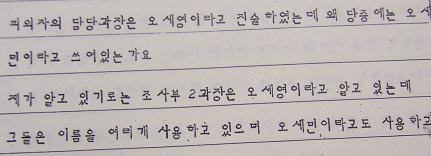 피의자의 담당과장은 오세영이라고 진술하였는데 왜 당증에는 오세
민이라고 쓰여있는가요
제가 알고 있기로는 조사부 2과장은 오세영이라고 알고 있는데
그들은 이름을 여러개 사용하고 있으며 오세민이라고도 사용하고